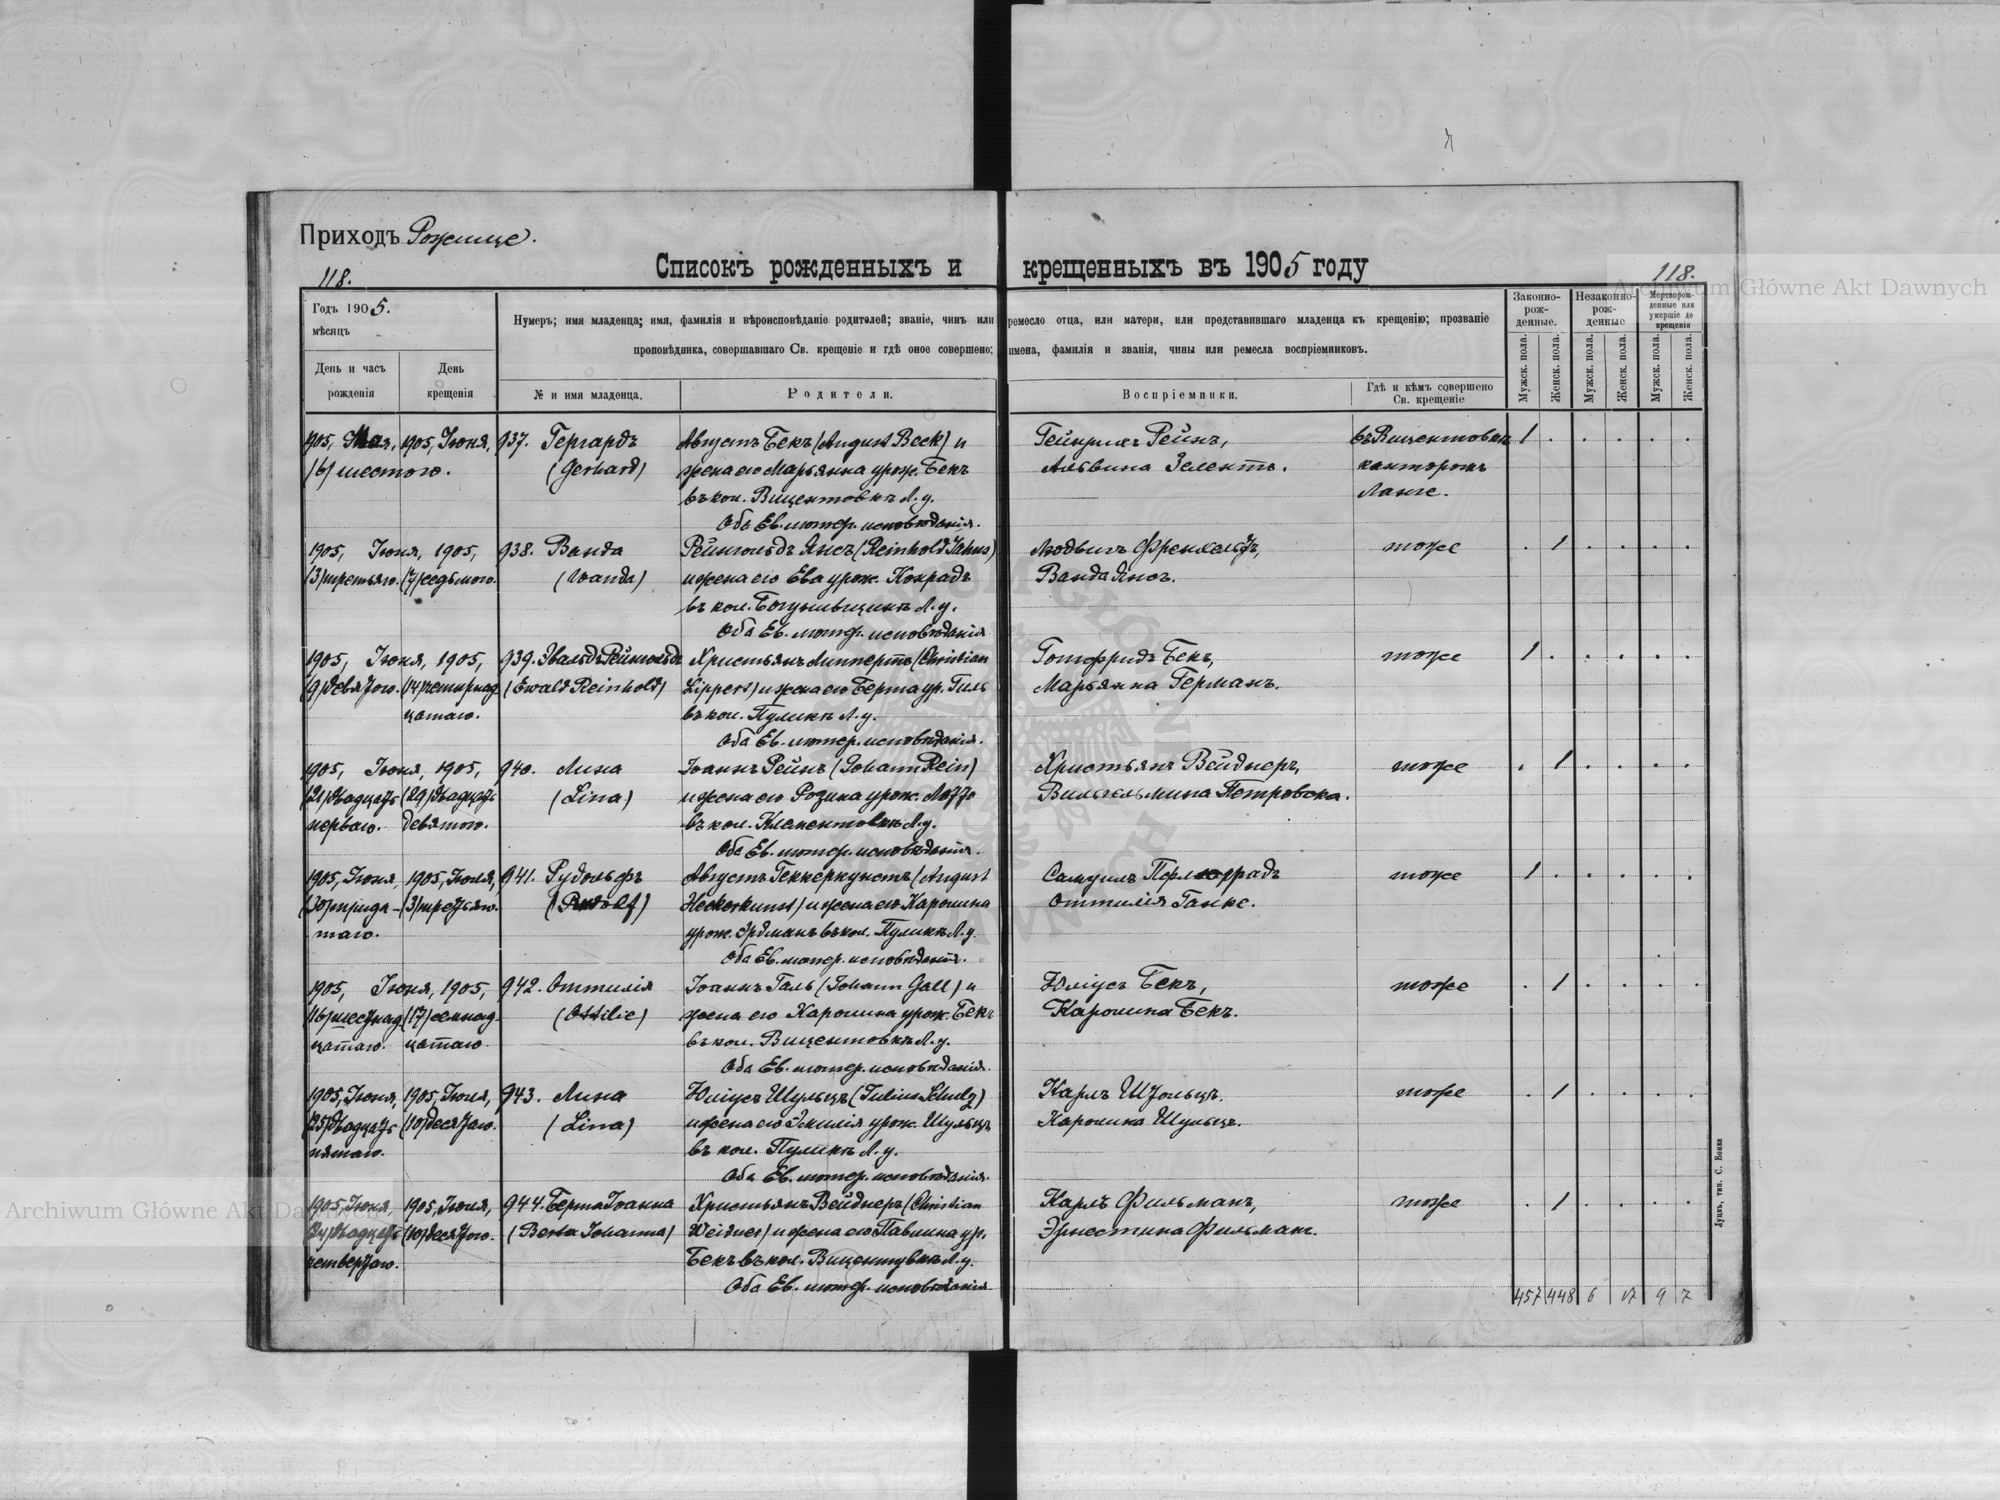 Приходъ Рожище.
118.
Списокъ рожденныхъ и крещенныхъ въ 1905 году
118.
Годъ 1905.
мѣсяцъ
День и часъ рожденія
День крещенія
Нумеръ; имя младенца; имя, фамилія и вѣроисповѣданіе родителей; званіе, чинъ или ремесло отца, или матери, или представившаго младенца къ крещенію; прозваніе
проповѣдника, совершавшаго Св. крещеніе и гдѣ оное совершено; имена, фамилія и званія, чины или ремесла воспріемниковъ.
№ и имя младенца.
Родители.
Воспріемники.
Гдѣ и кѣмъ совершено Св. крещеніе
Законно-рож-денные.
Незаконно-рож-денные
Мертворож-денные или умершіе до крещенія
Мужск. пола.
Женск. пола.
Мужск. пола.
Женск. пола.
Мужск. пола.
Женск. пола.
1905, Мая, 1905, Іюня, 937. Гергардъ Августъ Бекъ (August Beck) и Гейнрихъ Рейнъ, въ Вицентовкѣ 1 . . . . .
(6) шестого. (Gerhard) жена его Марьянна урож. Бекъ Альвина Зелентъ. канторомъ
въ кол. Вицентовкѣ Л. у. Ланге.
Оба Ев. лютер. исповѣданія.
1905, Іюня, 1905, 938. Ванда Рейнгольдъ Янсъ (Reinhold Jahns) Людвигъ Френхельдъ, тоже . 1 . . . .
(3) третьяго. (7) седьмого. (Wanda) и жена его Ева урож. Конрадъ Ванда Янсъ.
въ кол. Л. у.
Оба Ев. лютер. исповѣданія
1905, Іюня, 1905, 939. Эвальдъ Рейнгольдъ Христьянъ Липпертъ (Christian Готфридъ Бекъ, тоже 1 . . . . .
(9) девятого. (14) четырнад (Ewald Reinhold) Lippert) и жена его Берта ур. Гиль Марьянна Германъ.
цатаго. въ кол. Пуликѣ Л. у.
Оба Ев. лютер. исповѣданія.
1905, Іюня, 1905, 940. Лина Іоаннъ Рейнъ (Johann Rein) Христьянъ Вейднеръ, тоже . 1 . . . .
(21) двадцать (29) двадцать (Lina) и жена его Розина урож. Вильгельмина Петровска.
перваго. девятого. въ кол. Клементовкѣ Л. у.
Оба Ев. лютер. исповѣданія.
1905, Іюня, 1905, Іюля, 941. Рудольфъ Августъ Геккеркунстъ (August Самуилъ тоже 1 . . . . .
(30) трида- (3) третьяго. (Rudolf) Heckerkunst) и жена его Каролина Оттилія Ганке.
таго. урож. Эрдманъ въ кол. Пуликѣ Л. у.
Оба Ев. лютер. исповѣданія.
1905, Іюня, 1905, 942. Оттилія Іоаннъ Галь (Johann Gall) и Юліусъ Бекъ, тоже . 1 . . . .
(16) шестнад (17) семнад- (Ottilie) жена его Каролина урож. Бекъ Каролина Бекъ.
цатаго. цатаго въ кол. Вицентовкѣ Л. у.
Оба Ев. лютер. исповѣданія.
1905, Іюня, 1905, Іюля, 943. Лина Юліусъ Шульцъ (Julius Schulz) Карлъ Шульцъ. тоже . 1 . . . .
(25) двадцать (10) десятаго. (Lina) и жена его Эмилія урож. Шульцъ Каролина Шульцъ.
пятаго. въ кол. Пуликѣ Л. у.
Оба Ев. лютер. исповѣданія.
1905, Іюня, 1905, Іюля, 944. Берта Іоанна Христьянъ Вейднеръ (Christian Карлъ Фильманъ, тоже . 1 . . . .
(24) двадцать (10) десятаго. (Berta Johanna) Weidner) и жена его Павлина ур. Эрнестина Фильманъ.
четвертаго. Бекъ въ кол. Вицентувкѣ Л. у.
Оба Ев. лютер. исповѣданія
457 448 6 17 9 7
Луцкъ, тип. С. Бокка
Archiwum Główne Akt Dawnych
Archiwum Główne Akt Dawnych